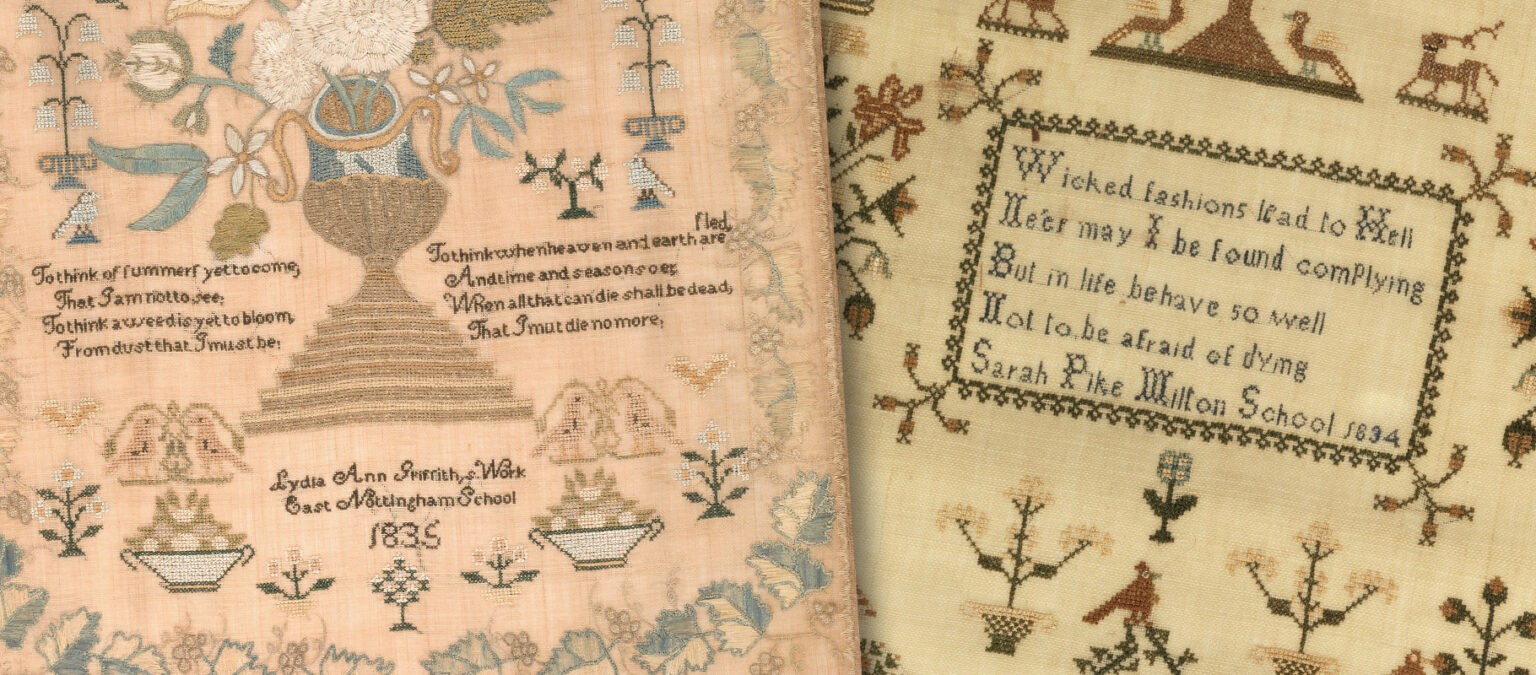 To think of ſummerſ yet to come,
That I am not to see;
To think a weed is yet to bloom,
From dust that I must be;
fled,
To think when heaven and earth are
And time and seasons oer,
When all that can die shall be dead,
That I mut die no more;
Lydia Ann Griffith,s Work
East Nottingham School
1835
Wicked fashions lead to Hell
Ne'er may I be found comPlying
But in life behave so well
Not to be afraid of dying
Sarah Pike Milton School 1834